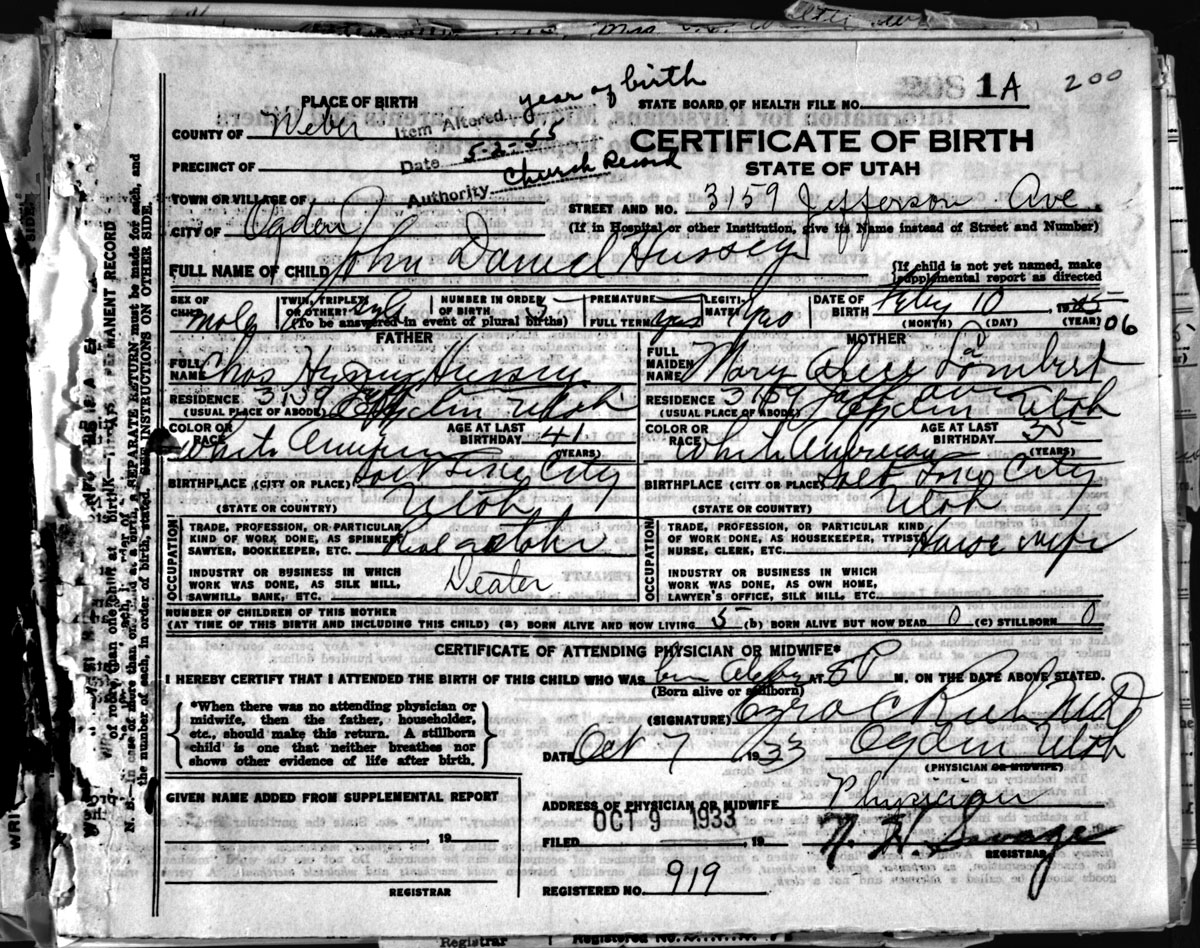 200
1A
PLACE OF BIRTH
STATE BOARD OF HEALTH FILE NO.
COUNTY OF Weber
Item Altered year of birth
Date 5-2-55
Authority Church Record
CERTIFICATE OF BIRTH
STATE OF UTAH
PRECINCT OF
TOWN OR VILLAGE OF
STREET AND NO. 3159 Jefferson Ave.
CITY OF Ogden
(If in Hospital or other Institution, give its Name instead of Street and Number)
FULL NAME OF CHILD John Daniel Hussey
{If child is not yet named, make
supplemental report as directed
SEX OF CHILD Male
TWIN, TRIPLET OR OTHER?
NUMBER IN ORDER OF BIRTH 5
(To be answered in event of plural births)
PREMATURE
FULL TERM yes
LEGITIMATE? Yes
DATE OF BIRTH Feby 10, 1905 06
(MONTH) (DAY) (YEAR)
FATHER
FULL NAME Chas Henry Hussey
RESIDENCE 3159 Jeff
(USUAL PLACE OF ABODE) Ogden Utah
COLOR OR RACE White American
AGE AT LAST BIRTHDAY 41 (YEARS)
BIRTHPLACE (CITY OR PLACE) Salt Lake City
(STATE OR COUNTRY) Utah
OCCUPATION
TRADE, PROFESSION, OR PARTICULAR
KIND OF WORK DONE, AS SPINNER,
SAWYER, BOOKKEEPER, ETC. Real Estate
INDUSTRY OR BUSINESS IN WHICH
WORK WAS DONE, AS SILK MILL,
SAWMILL, BANK, ETC. Dealer
MOTHER
FULL MAIDEN NAME Mary Alice Lambert
RESIDENCE 3159 Jeff Ave
(USUAL PLACE OF ABODE) Ogden Utah
COLOR OR RACE White American
AGE AT LAST BIRTHDAY 35 (YEARS)
BIRTHPLACE (CITY OR PLACE) Salt Lake City
(STATE OR COUNTRY) Utah
OCCUPATION
TRADE, PROFESSION, OR PARTICULAR KIND
OF WORK DONE, AS HOUSEKEEPER, TYPIST,
NURSE, CLERK, ETC. House wife
INDUSTRY OR BUSINESS IN WHICH
WORK WAS DONE, AS OWN HOME,
LAWYER'S OFFICE, SILK MILL, ETC.
NUMBER OF CHILDREN OF THIS MOTHER
(AT TIME OF THIS BIRTH AND INCLUDING THIS CHILD) (a) BORN ALIVE AND NOW LIVING 5 (b) BORN ALIVE BUT NOW DEAD 0 (c) STILLBORN 0
CERTIFICATE OF ATTENDING PHYSICIAN OR MIDWIFE*
I HEREBY CERTIFY THAT I ATTENDED THE BIRTH OF THIS CHILD WHO WAS AT 8 P M. ON THE DATE ABOVE STATED.
(Born alive or stillborn)
*When there was no attending physician or
midwife, then the father, householder,
etc., should make this return. A stillborn
child is one that neither breathes nor
shows other evidence of life after birth.
(SIGNATURE) Ezra C Rich M.D.
DATE Oct 7 1933 Ogden Utah
(PHYSICIAN OR MIDWIFE)
GIVEN NAME ADDED FROM SUPPLEMENTAL REPORT
, 19
REGISTRAR
ADDRESS OF PHYSICIAN OR MIDWIFE Physician
FILED OCT 9 1933, 19
REGISTRAR
REGISTERED NO. 919
Registrar
Registered No.
N. B.—In case of more than one child at a birth, a SEPARATE RETURN must be made for each, and
the number of each, in order of birth, stated. SEE INSTRUCTIONS ON OTHER SIDE.